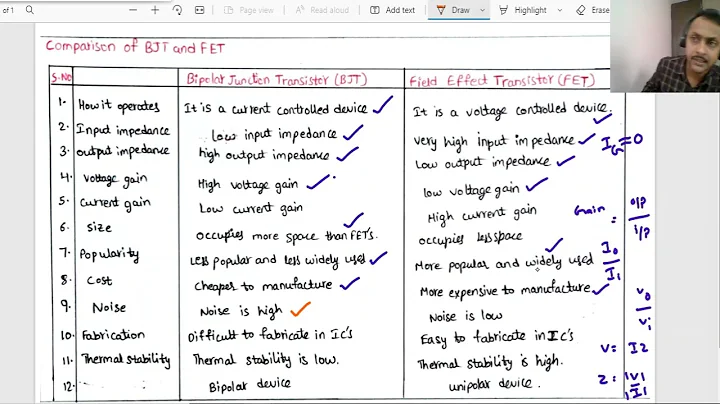 of 1
Page view
Read aloud
Add text
Draw
Highlight
Erase
Comparison of BJT and FET
S.No
Bipolar Junction Transistor (BJT)
Field Effect Transistor (FET)
1. How it operates It is a current controlled device It is a voltage controlled device.
2. Input impedance Low input impedance Very high input impedance IG ≈ 0
3. output impedance high output impedance Low output impedance
4. Voltage gain High voltage gain low voltage gain
5. Current gain Low current gain High current gain Gain = o/p / i/p
6. Size occupies more space than FET's. occupies less space
7. Popularity Less popular and less widely used More popular and widely used Io / I1
8. Cost Cheaper to manufacture More expensive to manufacture
9. Noise Noise is high Noise is low Vo / Vi
10. Fabrication Difficult to fabricate in IC's Easy to fabricate in IC's V = IZ
11. Thermal stability Thermal stability is low. Thermal stability is high.
12. Bipolar device unipolar device. Z = |V| / |I|